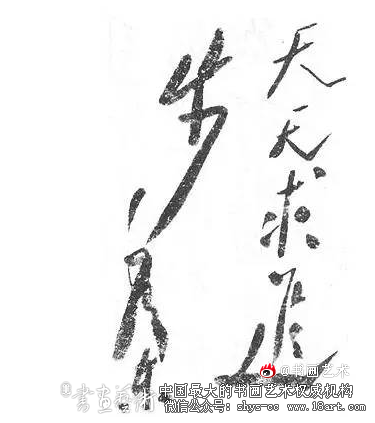 天天求進
步
@书画艺术
书画艺术
中国最大的书画艺术权威机构
微信公众号: shys-cc www.18art.com